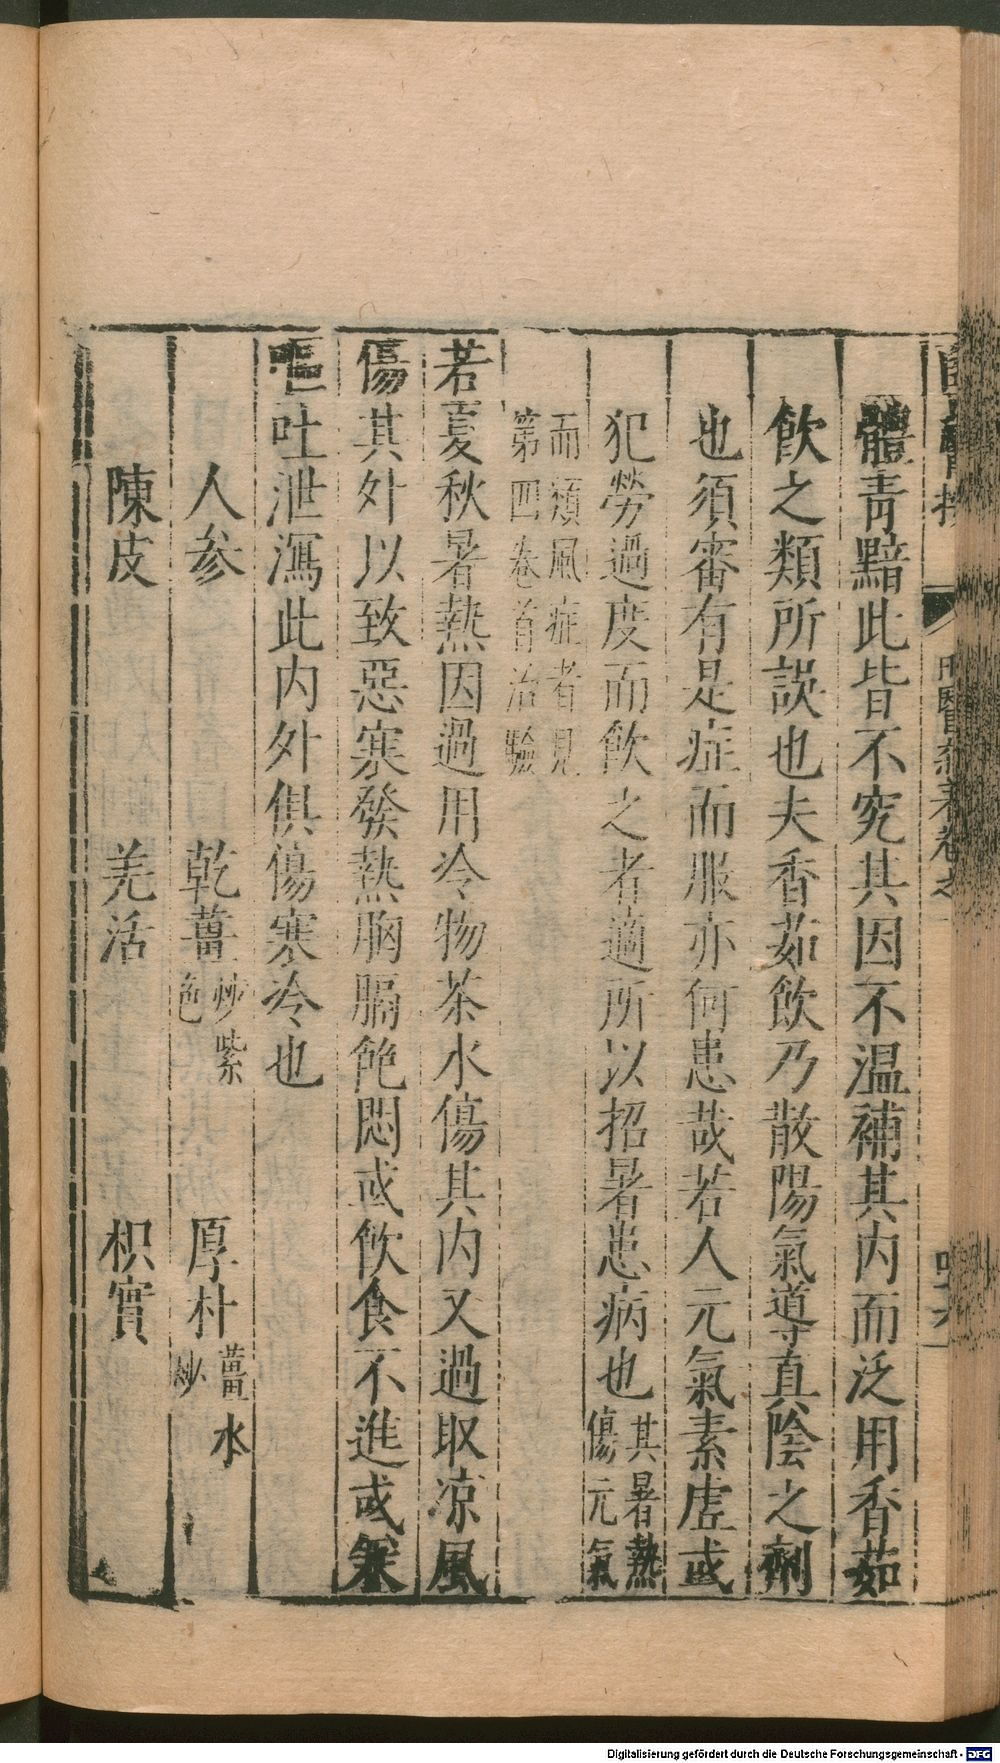 體靑黯此皆不究其因不温補其内而泛用香茹
飲之類所誤也夫香茹飲乃散陽氣導真陰之劑
也須審有是症而服亦何患哉若人元氣素虗或
犯勞過度而飲之者適所以招暑患病也其暑熱傷元氣
而類風症者見第四卷首治驗
若夏秋暑熱因過用冷物茶水傷其内又過取凉風
傷其外以致惡寒發熱胸膈飽悶或飲食不進或兼
嘔吐泄瀉此内外俱傷寒冷也
人參 乾薑炒紫色 厚朴薑水炒
陳皮 羌活 枳實
Digitalisierung gefördert durch die Deutsche Forschungsgemeinschaft - DFG